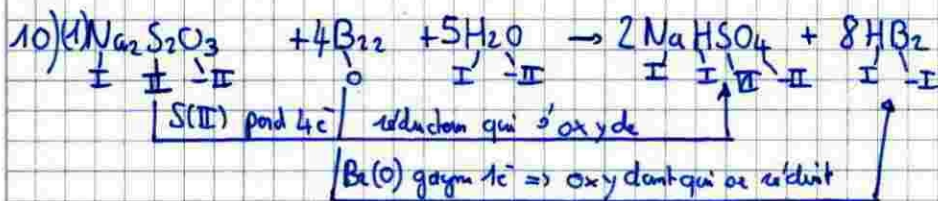 10)(1)Na₂S₂O₃ +4Br₂ +5H₂O → 2NaHSO₄ + 8HBr
I II -II O I -II I I VI -II I -I
S(II) perd 4e⁻ réducteur qui s'oxyde
Br(0) gagne 1e⁻ => oxydant qui se réduit